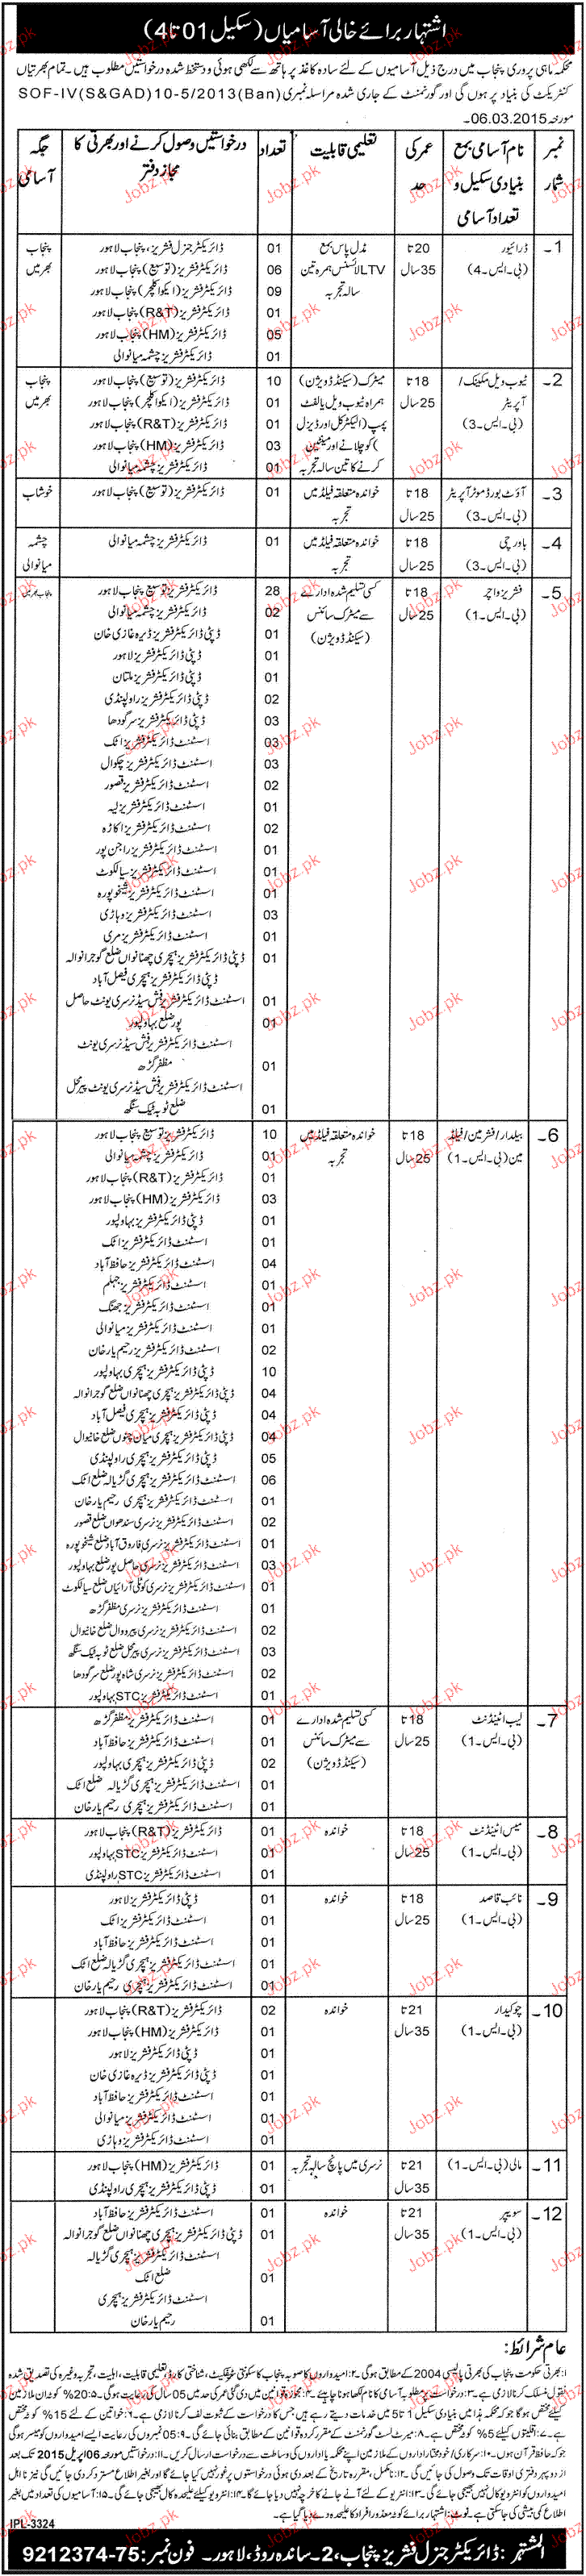 اشتہار برائے خالی آسامیاں (سکیل 01 تا 4)
محکمہ ماہی پروری پنجاب میں درج ذیل آسامیوں کے لئے سادہ کاغذ پر ہاتھ سے لکھی ہوئی و دستخط شدہ درخواستیں مطلوب ہیں۔ تمام بھرتیاں
کنٹریکٹ کی بنیاد پر ہوں گی اور گورنمنٹ کے جاری شدہ مراسلہ نمبری SOF-IV(S&GAD)10-5/2013(Ban)
مورخہ 06.03.2015۔
نمبر شمار | نام آسامی بمع بنیادی سکیل و تعداد آسامی | عمر کی حد | تعلیمی قابلیت | تعداد | درخواستیں وصول کرنے اور بھرتی کا مجاز دفتر | جگہ آسامی
1۔ ڈرائیور (بی۔ایس۔4) | 20 تا 35 سال | مڈل پاس بمع LTV لائسنس ہمراہ تین سالہ تجربہ | پنجاب بھر میں
01 ڈائریکٹر جنرل فشریز، پنجاب لاہور
06 ڈائریکٹر فشریز (توسیع) پنجاب لاہور
09 ڈائریکٹر فشریز (ایکواکلچر) پنجاب لاہور
01 ڈائریکٹر فشریز (R&T) پنجاب لاہور
05 ڈائریکٹر فشریز (HM) پنجاب لاہور
01 ڈائریکٹر فشریز چشمہ میانوالی
2۔ ٹیوب ویل مکینک/آپریٹر (بی۔ایس۔3) | 18 تا 25 سال | میٹرک (سیکنڈ ڈویژن) ہمراہ ٹیوب ویل یا لفٹ پمپ (الیکٹرکل اور ڈیزل) کو چلانے اور مینٹین کرنے کا تین سالہ تجربہ | پنجاب بھر میں
10 ڈائریکٹر فشریز (توسیع) پنجاب لاہور
01 ڈائریکٹر فشریز (ایکواکلچر) پنجاب لاہور
01 ڈائریکٹر فشریز (R&T) پنجاب لاہور
03 ڈائریکٹر فشریز (HM) پنجاب لاہور
01 ڈائریکٹر فشریز چشمہ میانوالی
3۔ آؤٹ بورڈ موٹر آپریٹر (بی۔ایس۔3) | 18 تا 25 سال | خواندہ متعلقہ فیلڈ میں تجربہ | 01 | ڈائریکٹر فشریز (توسیع) پنجاب لاہور | خوشاب
4۔ باورچی (بی۔ایس۔3) | 18 تا 25 سال | خواندہ متعلقہ فیلڈ میں تجربہ | 01 | ڈائریکٹر فشریز چشمہ میانوالی | چشمہ میانوالی
5۔ فشریز واچر (بی۔ایس۔1) | 18 تا 25 سال | کسی تسلیم شدہ ادارے سے میٹرک سائنس (سیکنڈ ڈویژن) | پنجاب بھر میں
28 ڈائریکٹر فشریز توسیع پنجاب لاہور
02 ڈائریکٹر فشریز چشمہ میانوالی
01 ڈپٹی ڈائریکٹر فشریز ڈیرہ غازی خان
01 ڈپٹی ڈائریکٹر فشریز لاہور
01 ڈپٹی ڈائریکٹر فشریز ملتان
02 ڈپٹی ڈائریکٹر فشریز راولپنڈی
03 ڈپٹی ڈائریکٹر فشریز سرگودھا
03 اسسٹنٹ ڈائریکٹر فشریز اٹک
03 اسسٹنٹ ڈائریکٹر فشریز چکوال
02 اسسٹنٹ ڈائریکٹر فشریز قصور
01 اسسٹنٹ ڈائریکٹر فشریز لیہ
02 اسسٹنٹ ڈائریکٹر فشریز اکاڑہ
01 اسسٹنٹ ڈائریکٹر فشریز راجن پور
01 اسسٹنٹ ڈائریکٹر فشریز سیالکوٹ
01 اسسٹنٹ ڈائریکٹر فشریز شیخوپورہ
03 اسسٹنٹ ڈائریکٹر فشریز وہاڑی
01 اسسٹنٹ ڈائریکٹر فشریز مری
01 ڈپٹی ڈائریکٹر فشریز ہیچری چھناواں ضلع گوجرانوالہ
ڈپٹی ڈائریکٹر فشریز ہیچری فیصل آباد
01 اسسٹنٹ ڈائریکٹر فشریز فش سیڈ نرسری یونٹ حاصل
01 پور ضلع بہاولپور
اسسٹنٹ ڈائریکٹر فشریز فش سیڈ نرسری یونٹ
01 مظفر گڑھ
اسسٹنٹ ڈائریکٹر فشریز فش سیڈ نرسری یونٹ پیر محل
01 ضلع ٹوبہ ٹیک سنگھ
6۔ بیلدار/فشرمین/فیلڈ مین (بی۔ایس۔1) | 18 تا 25 سال | خواندہ متعلقہ فیلڈ میں تجربہ
10 ڈائریکٹر فشریز توسیع پنجاب لاہور
01 ڈائریکٹر فشریز چشمہ میانوالی
01 ڈائریکٹر فشریز (R&T) پنجاب لاہور
03 ڈائریکٹر فشریز (HM) پنجاب لاہور
01 ڈپٹی ڈائریکٹر فشریز بہاولپور
01 اسسٹنٹ ڈائریکٹر فشریز اٹک
04 اسسٹنٹ ڈائریکٹر فشریز حافظ آباد
01 اسسٹنٹ ڈائریکٹر فشریز جہلم
01 اسسٹنٹ ڈائریکٹر فشریز جھنگ
01 اسسٹنٹ ڈائریکٹر فشریز میانوالی
02 اسسٹنٹ ڈائریکٹر فشریز رحیم یار خان
10 ڈپٹی ڈائریکٹر فشریز ہیچری بہاولپور
04 ڈپٹی ڈائریکٹر فشریز ہیچری چھناواں ضلع گوجرانوالہ
04 ڈپٹی ڈائریکٹر فشریز ہیچری فیصل آباد
04 ڈپٹی ڈائریکٹر فشریز ہیچری میاں چنوں ضلع خانیوال
05 ڈپٹی ڈائریکٹر فشریز ہیچری راولپنڈی
06 اسسٹنٹ ڈائریکٹر فشریز ہیچری گڑیالہ ضلع اٹک
01 اسسٹنٹ ڈائریکٹر فشریز ہیچری رحیم یار خان
02 اسسٹنٹ ڈائریکٹر فشریز نرسری سندھواں ضلع قصور
01 اسسٹنٹ ڈائریکٹر فشریز نرسری فاروق آباد ضلع شیخوپورہ
03 اسسٹنٹ ڈائریکٹر فشریز نرسری حاصل پور ضلع بہاولپور
01 اسسٹنٹ ڈائریکٹر فشریز نرسری کوٹلی آرائیاں ضلع سیالکوٹ
01 اسسٹنٹ ڈائریکٹر فشریز نرسری مظفر گڑھ
02 اسسٹنٹ ڈائریکٹر فشریز نرسری پیرووال ضلع خانیوال
03 اسسٹنٹ ڈائریکٹر فشریز نرسری پیر محل ضلع ٹوبہ ٹیک سنگھ
02 اسسٹنٹ ڈائریکٹر فشریز نرسری شاہ پور ضلع سرگودھا
01 اسسٹنٹ ڈائریکٹر فشریز STC بہاولپور
7۔ لیب اٹینڈنٹ (بی۔ایس۔1) | 18 تا 25 سال | کسی تسلیم شدہ ادارے سے میٹرک سائنس (سیکنڈ ڈویژن)
01 اسسٹنٹ ڈائریکٹر فشریز مظفر گڑھ
01 اسسٹنٹ ڈائریکٹر فشریز حافظ آباد
02 ڈپٹی ڈائریکٹر فشریز ہیچری بہاولپور
01 اسسٹنٹ ڈائریکٹر فشریز ہیچری گڑیالہ ضلع اٹک
01 اسسٹنٹ ڈائریکٹر فشریز ہیچری رحیم یار خان
8۔ میس اٹینڈنٹ (بی۔ایس۔1) | 18 تا 25 سال | خواندہ
01 ڈائریکٹر فشریز (R&T) پنجاب لاہور
01 اسسٹنٹ ڈائریکٹر فشریز STC بہاولپور
01 ڈپٹی ڈائریکٹر فشریز STC راولپنڈی
9۔ نائب قاصد (بی۔ایس۔1) | 18 تا 25 سال | خواندہ
01 ڈپٹی ڈائریکٹر فشریز لاہور
01 اسسٹنٹ ڈائریکٹر فشریز اٹک
01 اسسٹنٹ ڈائریکٹر فشریز حافظ آباد
01 اسسٹنٹ ڈائریکٹر فشریز ہیچری گڑیالہ ضلع اٹک
01 اسسٹنٹ ڈائریکٹر فشریز ہیچری رحیم یار خان
10۔ چوکیدار (بی۔ایس۔1) | 21 تا 35 سال | خواندہ
02 ڈائریکٹر فشریز (R&T) پنجاب لاہور
01 ڈائریکٹر فشریز (HM) پنجاب لاہور
01 ڈپٹی ڈائریکٹر فشریز لاہور
01 ڈپٹی ڈائریکٹر فشریز ڈیرہ غازی خان
01 اسسٹنٹ ڈائریکٹر فشریز حافظ آباد
01 اسسٹنٹ ڈائریکٹر فشریز میانوالی
01 اسسٹنٹ ڈائریکٹر فشریز وہاڑی
11۔ مالی (بی۔ایس۔1) | 21 تا 35 سال | نرسری میں پانچ سالہ تجربہ
01 ڈائریکٹر فشریز (HM) پنجاب لاہور
01 ڈپٹی ڈائریکٹر فشریز راولپنڈی
12۔ سویپر (بی۔ایس۔1) | 21 تا 35 سال | خواندہ
01 اسسٹنٹ ڈائریکٹر فشریز حافظ آباد
01 ڈپٹی ڈائریکٹر فشریز ہیچری چھناواں ضلع گوجرانوالہ
اسسٹنٹ ڈائریکٹر فشریز ہیچری گڑیالہ
01 ضلع اٹک
اسسٹنٹ ڈائریکٹر فشریز ہیچری
01 رحیم یار خان
عام شرائط:
۱: بھرتی حکومت پنجاب کی بھرتی پالیسی 2004 کے مطابق ہوگی۔ ۲: امیدواروں کا صوبہ پنجاب کا سکونتی سرٹیفکیٹ، شناختی کارڈ، تعلیمی قابلیت، اہلیت، تجربہ وغیرہ کی تصدیق شدہ
نقول منسلک کرنا لازمی ہے۔ ۳: درخواست پر مطلوبہ آسامی کا نام لکھا ہونا چاہیئے۔ ۴: مجاز قوانین میں دی گئی عمر کی حد میں 05 سال کی رعایت ہو گی۔ ۵: 20% کوٹہ ان ملازمین
کیلئے مختص ہو گا جو کہ محکمہ ہذا میں بنیادی سکیل 1 تا 5 میں خدمات دیتے رہے ہیں جس کا درخواست کے ثبوت لف کرنا لازمی ہے۔ ۶: خواتین کے لئے 15% کوٹہ مختص
ہے۔ ۷: اقلیتوں کیلئے 5% کوٹہ مختص ہے۔ ۸: میرٹ لسٹ گورنمنٹ کے مقرر کردہ قوانین کے مطابق بنائی جائے گی۔ ۹: 05 نمبروں کی رعایت ایسے امیدواروں کو میسر ہوگی
جو کہ حافظ قرآن ہوں۔ ۱۰: سرکاری/خودمختار اداروں کے ملازمین اپنے محکمہ یا اداروں کی وساطت سے درخواست ارسال کریں۔ ۱۱: درخواستیں مورخہ 06 اپریل 2015 تک بعد
از دوپہر دفتری اوقات تک وصول کی جائیں گی۔ ۱۲: نامکمل، مقررہ تاریخ کے بعد دی ہوئی درخواستوں پر غور نہیں کیا جائے گا اور بغیر اطلاع مسترد کر دی جائیں گی نیز نا اہل
امیدواروں کو انٹرویو کال نہیں بھیجی جائے گی۔ ۱۳: انٹرویو کے لئے آنے جانے کا خرچہ نہیں دیا جائے گا۔ ۱۴: انٹرویو کیلئے علیحدہ کال بھیجی جائے گی۔ ۱۵: آسامیوں کی تعداد میں بغیر
اطلاع کی بیشی کی جا سکتی ہے۔ نوٹ: اشتہار برائے کوٹہ معذور افراد کا علیحدہ دے دیا گیا ہے۔
IPL-3324
المشتہر: ڈائریکٹر جنرل فشریز پنجاب، 2۔ ساندہ روڈ، لاہور۔ فون نمبر: 75-9212374
Jobz.pk